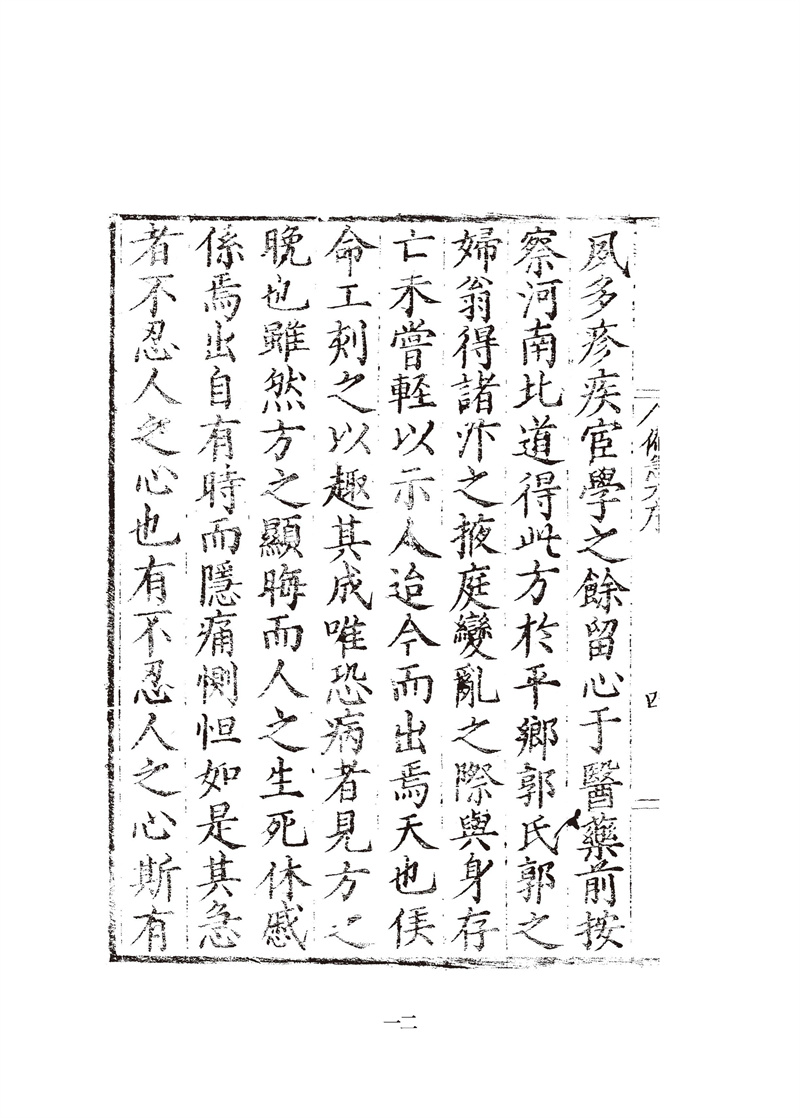 夙多疹疾宦學之餘留心于醫藥前按
察河南北道得此方於平鄉郭氏郭之
婦翁得諸汴之掖庭變亂之際與身存
亡未嘗輕以示人迨今而出焉天也侯
命工刻之以趣其成唯恐病者見方之
晚也雖然方之顯晦而人之生死休戚
係焉出自有時而隱痛惻怛如是其急
者不忍人之心也有不忍人之心斯有
四
一二